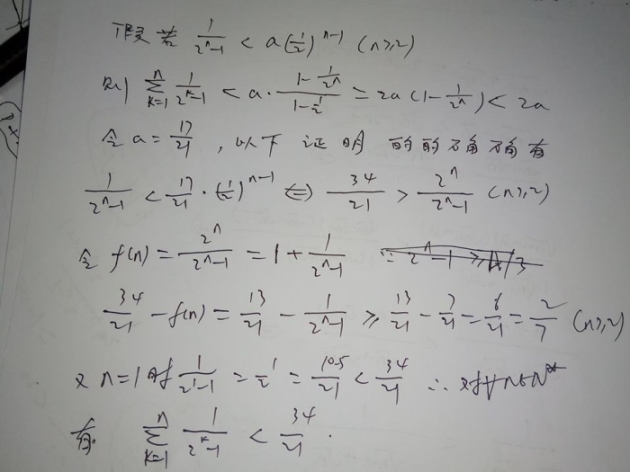 假若 1/(2^n-1) < a(1/2)^(n-1) (n≥2)
则 ∑_{k=1}^{n} 1/(2^k-1) < a·(1-1/2^n)/(1-1/2) = 2a(1-1/2^n) < 2a
令 a=17/21 , 以下证明 的的确确有
1/(2^n-1) < 17/21·(1/2)^(n-1) ⇔ 34/21 > 2^n/(2^n-1) (n≥2)
令 f(n)=2^n/(2^n-1)=1+1/(2^n-1)
34/21-f(n)=13/21-1/(2^n-1)≥13/21-7/21=6/21=2/7 (n≥2)
又 n=1时 1/(2^1-1)=1/2=10.5/21<34/21 ∴对∀n∈N*
有 ∑_{k=1}^{n} 1/(2^k-1) < 34/21 .